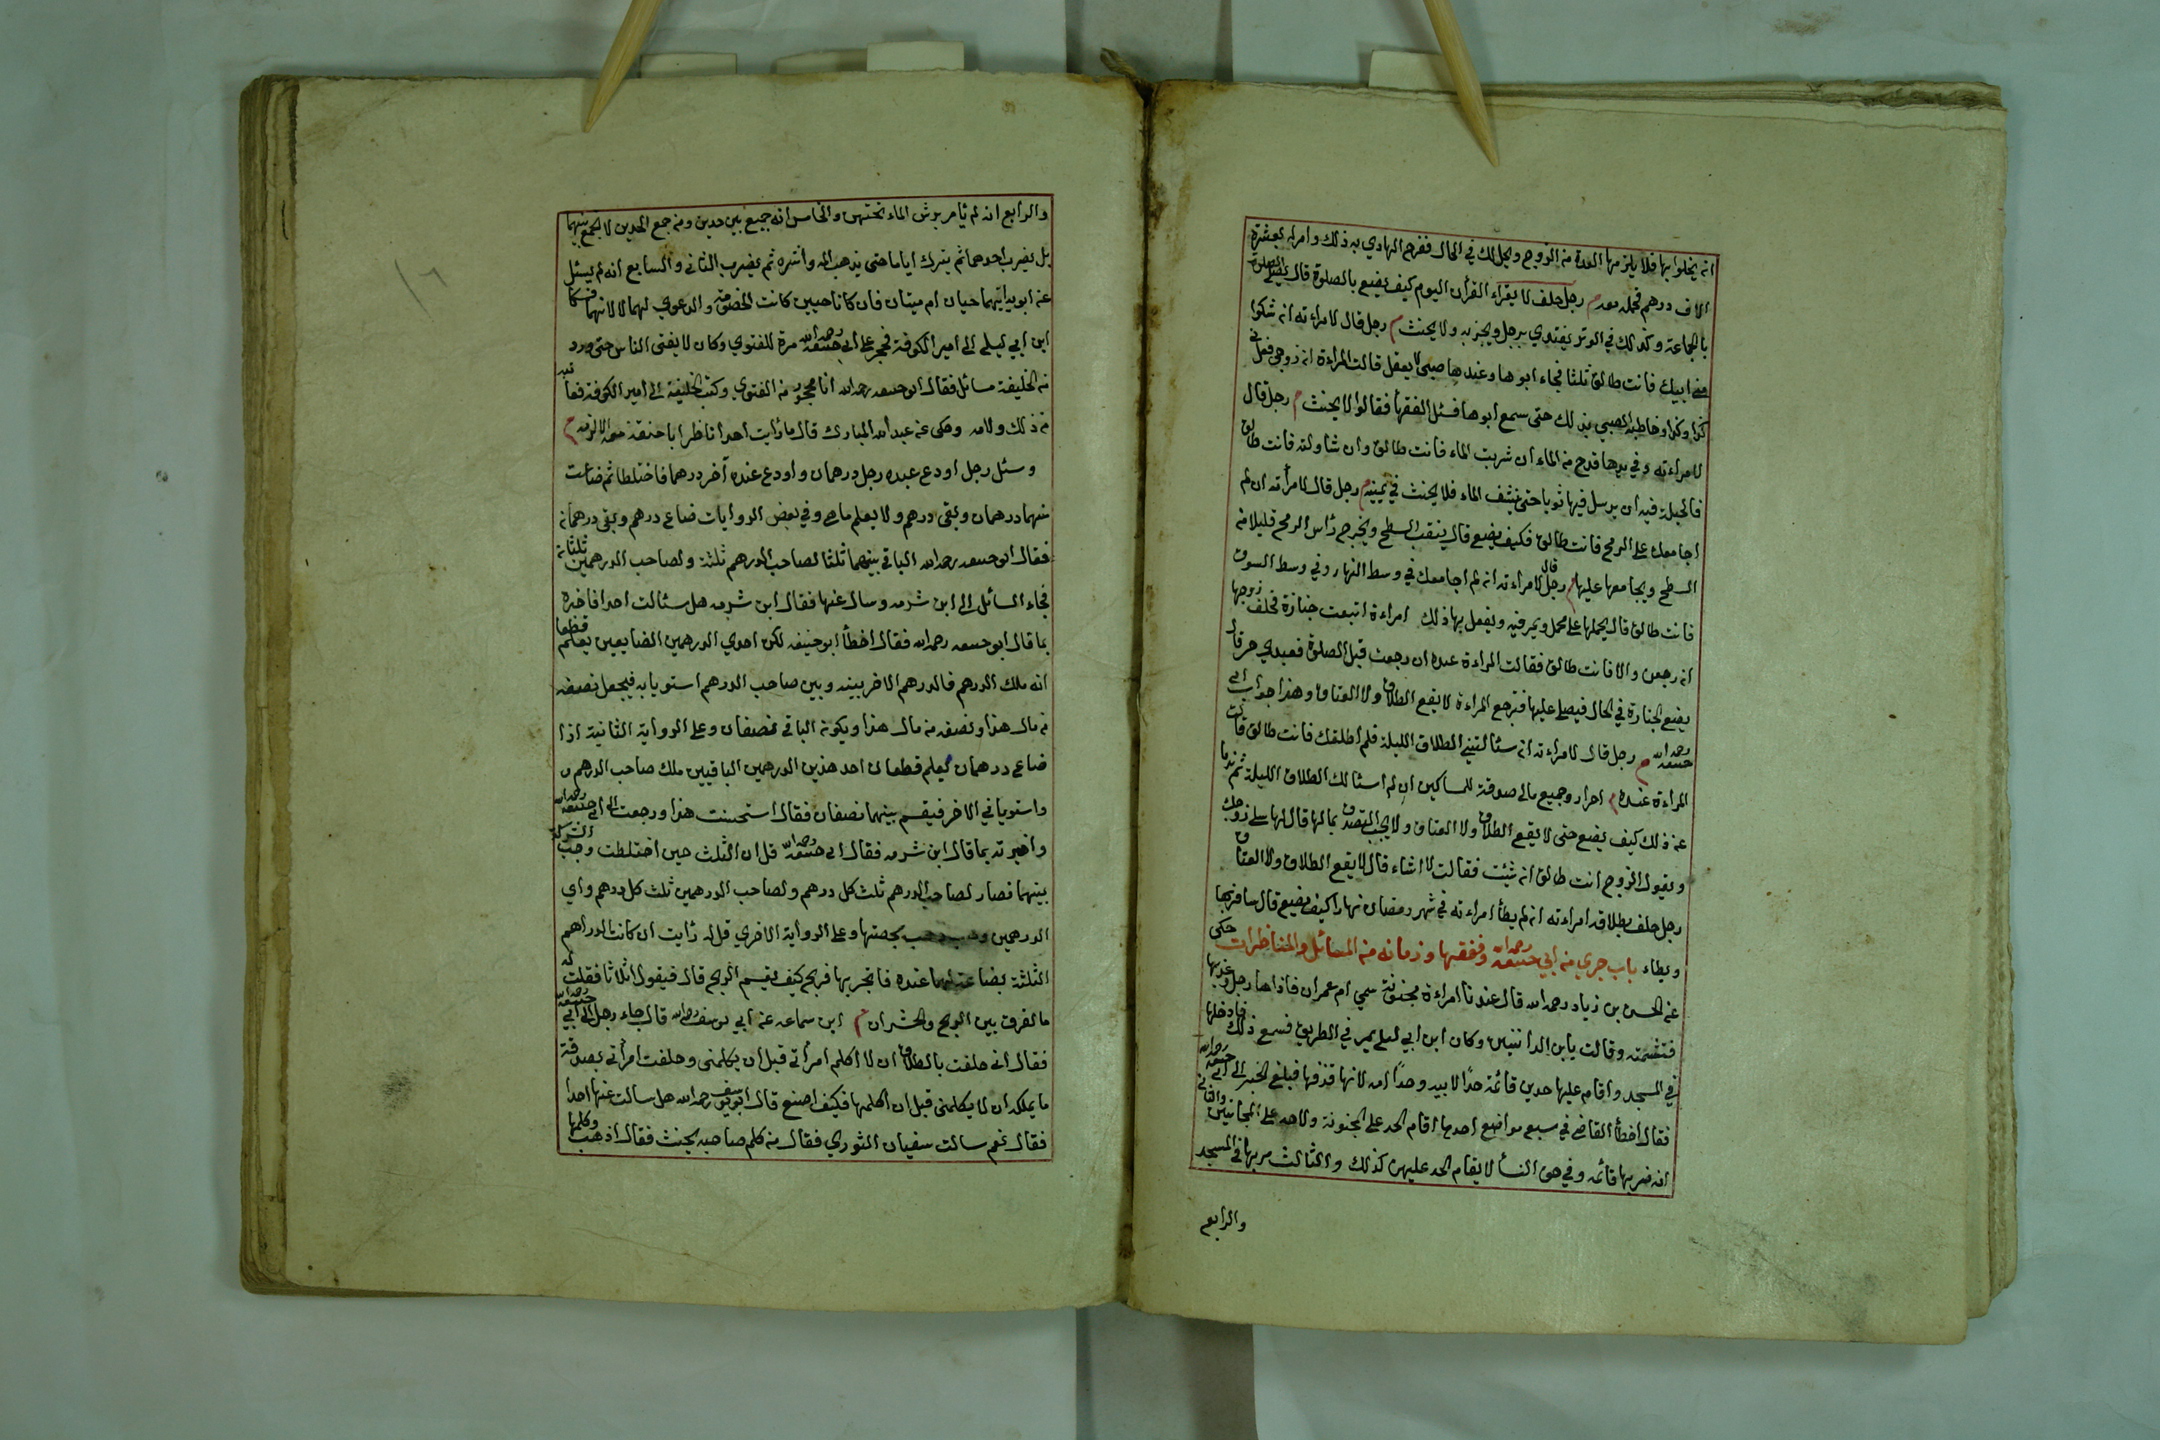 انه يخلوا بها فلا يلزمها العدة من الزوج ويحل لك في الحال ففرح الهادي به ذلك وامر له بعشرة
الاف درهم فحمله معه م رجل حلف لا يقراء القرآن اليوم كيف يصنع بالصلوة قال يصلي الصلوة
بالجماعة وكذلك في الوتر يقتدي برجل ويجزيه ولا يحنث م رجل قال لامراءته ان شكوا
من ابيك فانت طالق ثلثا فجاء ابوها وعندها صبي لا يعقل قالت المراءة ان زوجي فعل في
كذا وكذا وخاطبة الصبي بذلك حتى سمع ابوها فسئل الفقهأ فقالوا لا يحنث م رجل قال
لامراءته وفي يدها قدح من الماء ان شربت الماء فانت طالق وان شاولته فانت طالق
فالحيلة فيه ان يرسل فيها ثوبا حتى ينشف الماء فلا يحنث في يمينه م رجل قال لامرأته ان لم
اجامعك على الرمح فانت طالق فكيف يصنع قال ينقب السطح ويخرج رأس الرمح قليلا من
السطح ويجامعها عليها م رجل قال لامراءته ان لم اجامعك في وسط النهار وفي وسط السوق
فانت طالق قال يحملها على محمل ويمر فيه ويفعل بها ذلك امراءة اتبعت جنازة فحلف زوجها
ان رجعن والا فانت طالق فقالت المراءة عبده ان رجعت قبل الصلوة فعبدي حر قال
يضع الجنازة في الحال فيصلي عليها فترجع المراءة لا يقع الطلاق ولا العتاق وهذا جواب ابي
حنيفة رحمه الله م رجل قال لامراءته ان سئالتيني الطلاق الليلة فلم اطلقك فانت طالق قالت
المراءة عنده م احرار وجميع مالي صدقة للمساكين ان لم اسئالك الطلاق الليلة ثم ندما
عن ذلك كيف يصنع حتى لا يقع الطلاق ولا العتاق ولا يجب التصدق بمالها قال لها سلي زوجك
ويقول الزوج انت طالق ان شئت فقالت لا اشاء قال لا يقع الطلاق ولا العتاق
رجل حلف بطلاقه امراءته ان لم يطأ امراءته في شهر رمضان نهارا كيف يصنع قال سافر بها
ويطاء باب جري من ابي حنيفة رحمه الله وفقهها وزمانه من المسائل والمناظرات حكي
عن الحسن بن زياد رحمه الله قال عندنا امراءة مجنونة سمي ام عمران فاذاها رجل
فتشمته وقالت يا بن الزانيين وكان ابن ابي ليلى يمر في الطريق فسمع ذلك فادخلها
في المسجد واقام عليها حدين قائمة حدًا لابيه وحدًا امه لانها قذفها فبلغ الخبر الى ابي حنيفة رحمه الله
فقال اخطأ القاضي في سبع مواضع احدها اقام الحد على المجنونة ولا حد على المجانين والثاني
انه ضربها قائمة وفي حق النسأ لا يقام الحد عليهن كذلك والثالث مر بها في المسجد
والرابع
والرابع انه لم يأمر برش الماء تحتهن والخامس انه جميع بين حدين ومن جمع الحدين لا يجمع بينهما
بل يضرب احدهما ثم يترك اياما حتى يذهب الم واثره ثم يضرب الثاني والسابع انه لم يسئل
عن ابويه ايهما حيان ام ميتان فان كانا حيين كانت الخصومة والدعوي لهما لا لابنهما فشكا
ابن ابي ليلى الى امير الكوفة فحجر على ابي حنيفة رحمه الله مرة للفتوي وكان لا يفتى الناس حتى ورد
من الخليفة مسائل فقال ابو حنيفة رحمه الله انا محجور من الفتوي وكتب الخليفة الى امير الكوفة
من ذلك ولامه وحكى عن عبد الله المبارك قال ما رأيت احدا ناظر ابا حنيفة م
وسئل رجل اودع عبده رجل درهمان واودع عنده آخر درهما فاختلطا ثم ضاعت
منهما درهمان وبقى درهم ولا يعلم ما هي وفي بعض الروايات ضاع درهم وبقى درهمان
فقال ابو حنيفة رحمه الله الباقي بينهما ثلثا لصاحب الدرهم ثلثة ولصاحب الدرهمين ثلثان
فجاء السائل الى ابن شرمه وسال عنها فقال ابن شرمه هل سئالت احدا فاخبره
بما قال ابو حنيفة رحمه الله فقال اخطأ ابو حنيفه لكن احدي الدرهمين الضايعين يعلم قطعا
انه ملك الدرهم فالدرهم الاخر بينه وبين صاحب الدرهم استويا به فيجعل نصفه
من مال هذا ونصفه من مال هذا ويكون الباقي نصفان وعلى الرواية الثانية اذا
ضاع درهمان يعلم قطعا ان احد هذين الدرهمين الباقيين ملك صاحب الدرهم ن
واستويا في الاخر فيقسم بينهما نصفان فقال استحسنت هذا ورجعت الى ابي حنيفة رحمه الله
واخبرته بما قال ابن شرمه فقال ابي حنيفة رحمه الله قل ان الثلث حين اختلطت وجب الشركة
بينهما فصار لصاحب الدرهم ثلث كل درهم ولصاحب الدرهمين ثلث كل درهم واي
الدرهمين بحصتها وعلى الرواية الاخري قل له رايت ان كانت الدراهم
الثلثة بضاعة لهما عنده فاتجر بها فربح كيف يقسم الربح قال فيقول اثلاثا فقلت له
ما الفرق بين الربح والخسران م ابن سماعه عن ابي يوسف رحمه الله قال جاء رجل الى ابي حنيفة رحمه الله
فقال اني حلفت بالطلاق ان لا اكلم امرأتي قبل ان يكلمني وحلفت امرأتي بصدقة
ما يملكه ان لا يكلمني قبل ان اكلمها فكيف اصنع قال ابو يوسف رحمه الله هل سالت عنها احدا
فقال نعم سالت سفيان الثوري فقال من كلم صاحبه يحنث فقال اذهب وكلمها